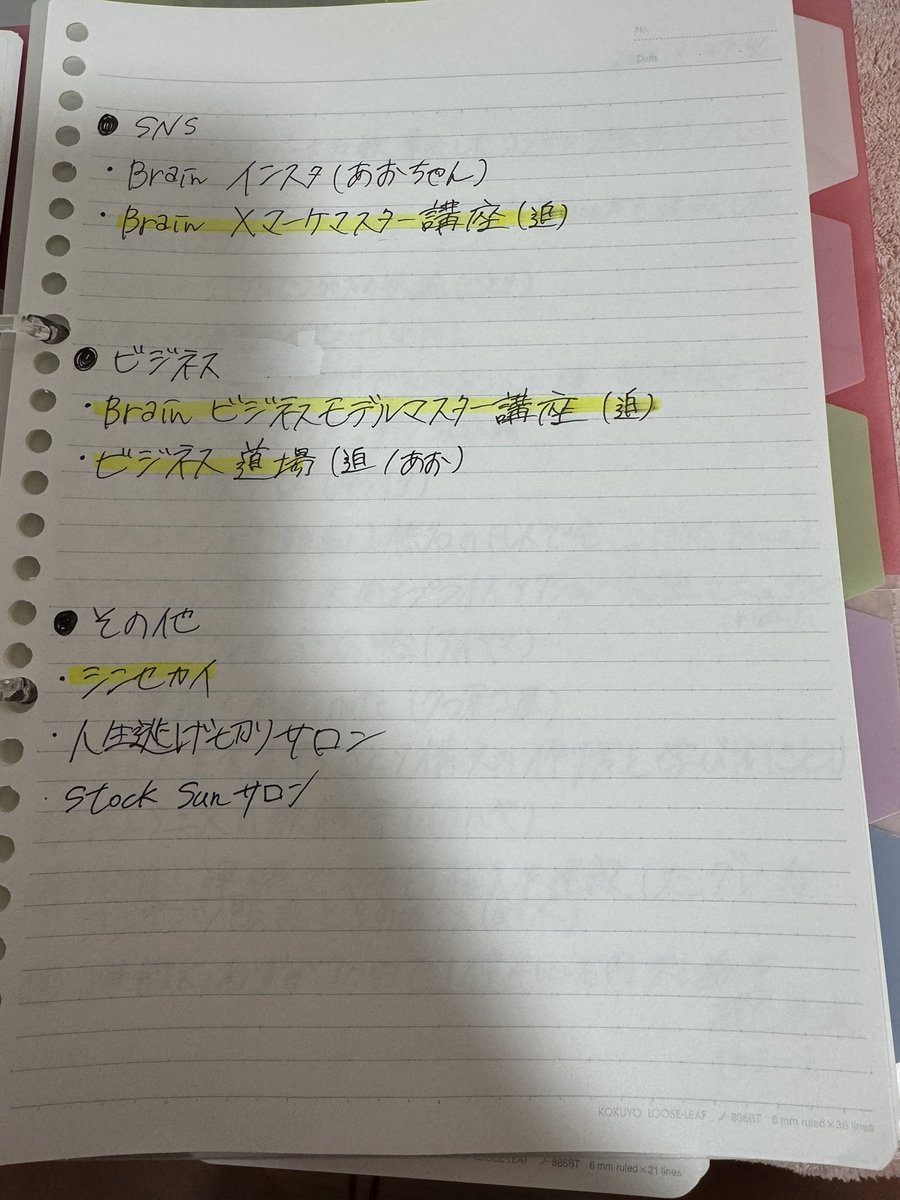 No.
Date
● SNS
・Brain インスタ(あおちゃん)
・Brain Xマーケマスター講座(迫)
● ビジネス
・Brain ビジネスモデルマスター講座(迫)
・ビジネス道場(迫/あお)
● その他
・シンセカイ
・人生逃げ切りサロン
・Stock Sunサロン
KOKUYO LOOSE-LEAF ノ-836BT 6 mm ruled×36 lines
LOOSE-LEAF ノ-886BT 6 mm ruled×21 lines